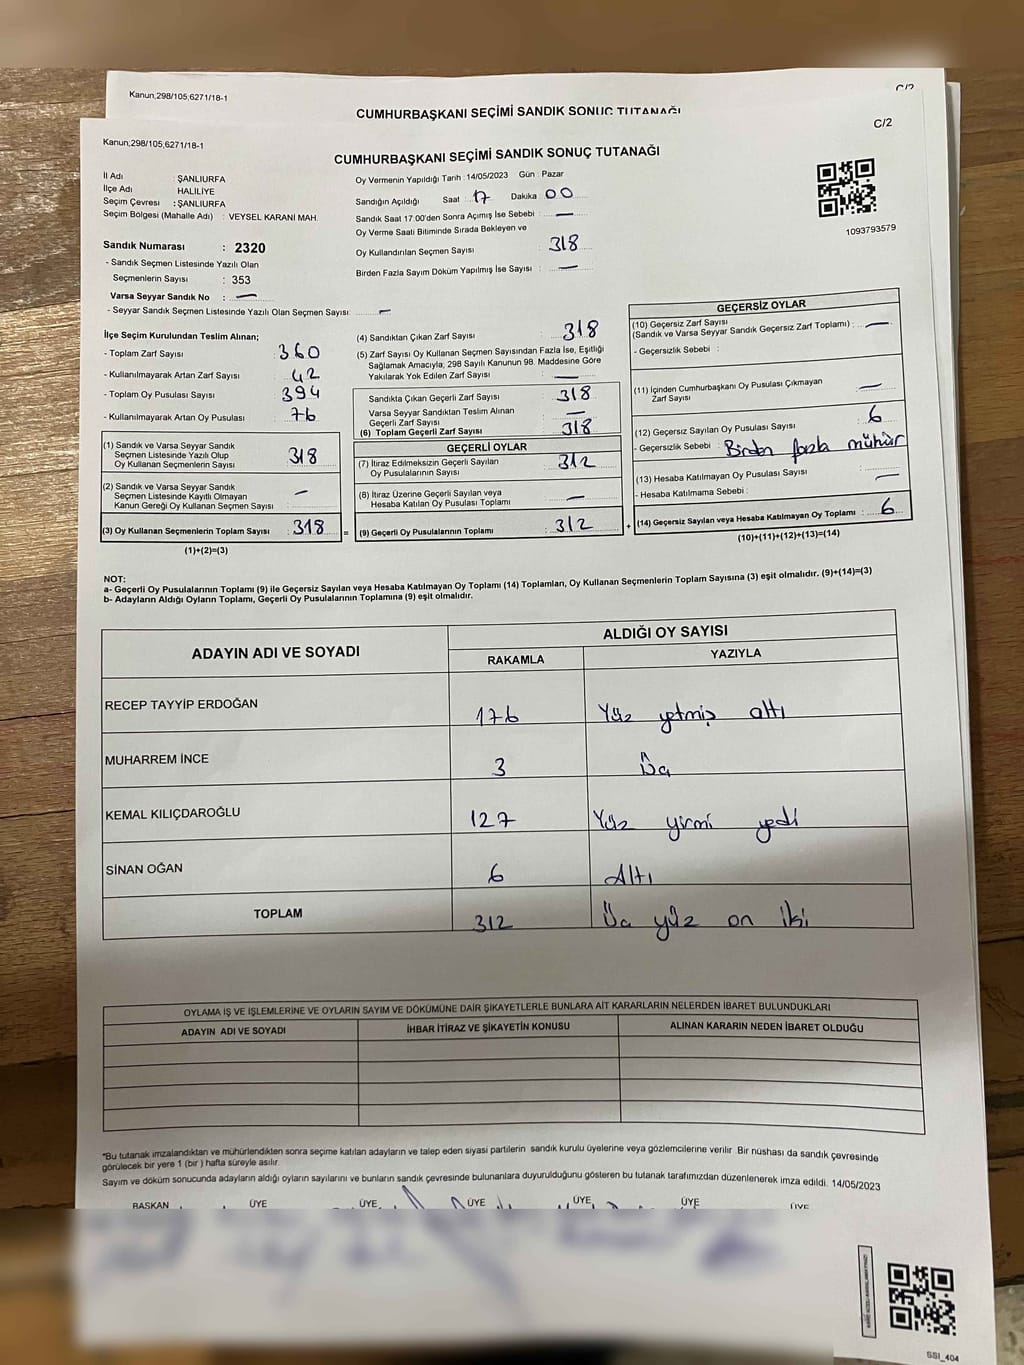 Kanun,298/105,6271/18-1
CUMHURBAŞKANI SEÇİMİ SANDIK SONUÇ TUTANAĞI
C/2
Kanun,298/105,6271/18-1
CUMHURBAŞKANI SEÇİMİ SANDIK SONUÇ TUTANAĞI
C/2
İl Adı : ŞANLIURFA
İlçe Adı HALİLİYE
Seçim Çevresi : ŞANLIURFA
Seçim Bölgesi (Mahalle Adı) : VEYSEL KARANİ MAH.
Oy Vermenin Yapıldığı Tarih :14/05/2023 Gün : Pazar
Sandığın Açıldığı Saat : 17 Dakika 00
Sandık Saat 17:00'den Sonra Açımış İse Sebebi : —
Oy Verme Saati Bitiminde Sırada Bekleyen ve
Oy Kullandırılan Seçmen Sayısı : 318
Birden Fazla Sayım Döküm Yapılmış İse Sayısı : —
1093793579
Sandık Numarası : 2320
- Sandık Seçmen Listesinde Yazılı Olan
Seçmenlerin Sayısı : 353
Varsa Seyyar Sandık No : —
- Seyyar Sandık Seçmen Listesinde Yazılı Olan Seçmen Sayısı: —
İlçe Seçim Kurulundan Teslim Alınan;
- Toplam Zarf Sayısı : 360
- Kullanılmayarak Artan Zarf Sayısı : 42
- Toplam Oy Pusulası Sayısı : 394
- Kullanılmayarak Artan Oy Pusulası : 76
(1) Sandık ve Varsa Seyyar Sandık
Seçmen Listesinde Yazılı Olup
Oy Kullanan Seçmenlerin Sayısı : 318
(2) Sandık ve Varsa Seyyar Sandık
Seçmen Listesinde Kayıtlı Olmayan
Kanun Gereği Oy Kullanan Seçmen Sayısı : —
(3) Oy Kullanan Seçmenlerin Toplam Sayısı : 318 =
(1)+(2)=(3)
(4) Sandıktan Çıkan Zarf Sayısı : 318
(5) Zarf Sayısı Oy Kullanan Seçmen Sayısından Fazla İse, Eşitliği
Sağlamak Amacıyla; 298 Sayılı Kanunun 98. Maddesine Göre
Yakılarak Yok Edilen Zarf Sayısı : —
Sandıkta Çıkan Geçerli Zarf Sayısı : 318
Varsa Seyyar Sandıktan Teslim Alınan
Geçerli Zarf Sayısı : —
(6) Toplam Geçerli Zarf Sayısı : 318
GEÇERLİ OYLAR
(7) İtiraz Edilmeksizin Geçerli Sayılan
Oy Pusulalarının Sayısı : 312
(8) İtiraz Üzerine Geçerli Sayılan veya
Hesaba Katılan Oy Pusulası Toplamı : —
(9) Geçerli Oy Pusulalarının Toplamı : 312 +
GEÇERSİZ OYLAR
(10) Geçersiz Zarf Sayısı
(Sandık ve Varsa Seyyar Sandık Geçersiz Zarf Toplamı) : —
- Geçersizlik Sebebi :
(11) İçinden Cumhurbaşkanı Oy Pusulası Çıkmayan
Zarf Sayısı : —
(12) Geçersiz Sayılan Oy Pusulası Sayısı : 6
- Geçersizlik Sebebi : Birden fazla mühür
(13) Hesaba Katılmayan Oy Pusulası Sayısı : —
- Hesaba Katılmama Sebebi :
(14) Geçersiz Sayılan veya Hesaba Katılmayan Oy Toplamı : 6
(10)+(11)+(12)+(13)=(14)
NOT:
a- Geçerli Oy Pusulalarının Toplamı (9) ile Geçersiz Sayılan veya Hesaba Katılmayan Oy Toplamı (14) Toplamları, Oy Kullanan Seçmenlerin Toplam Sayısına (3) eşit olmalıdır. (9)+(14)=(3)
b- Adayların Aldığı Oyların Toplamı, Geçerli Oy Pusulalarının Toplamına (9) eşit olmalıdır.
ADAYIN ADI VE SOYADI
ALDIĞI OY SAYISI
RAKAMLA YAZIYLA
RECEP TAYYİP ERDOĞAN 176 Yüz yetmiş altı
MUHARREM İNCE 3 Üç
KEMAL KILIÇDAROĞLU 127 Yüz yirmi yedi
SİNAN OĞAN 6 Altı
TOPLAM 312 Üç yüz on iki
OYLAMA İŞ VE İŞLEMLERİNE VE OYLARIN SAYIM VE DÖKÜMÜNE DAİR ŞİKAYETLERLE BUNLARA AİT KARARLARIN NELERDEN İBARET BULUNDUKLARI
ADAYIN ADI VE SOYADI İHBAR İTİRAZ VE ŞİKAYETİN KONUSU ALINAN KARARIN NEDEN İBARET OLDUĞU
*Bu tutanak imzalandıktan ve mühürlendikten sonra seçime katılan adayların ve talep eden siyasi partilerin sandık kurulu üyelerine veya gözlemcilerine verilir. Bir nüshası da sandık çevresinde
görülecek bir yere 1 (bir ) hafta süreyle asılır.
Sayım ve döküm sonucunda adayların aldığı oyların sayılarını ve bunların sandık çevresinde bulunanlara duyurulduğunu gösteren bu tutanak tarafımızdan düzenlenerek imza edildi. 14/05/2023
BAŞKAN ÜYE ÜYE ÜYE ÜYE ÜYE ÜYE
SSI_404